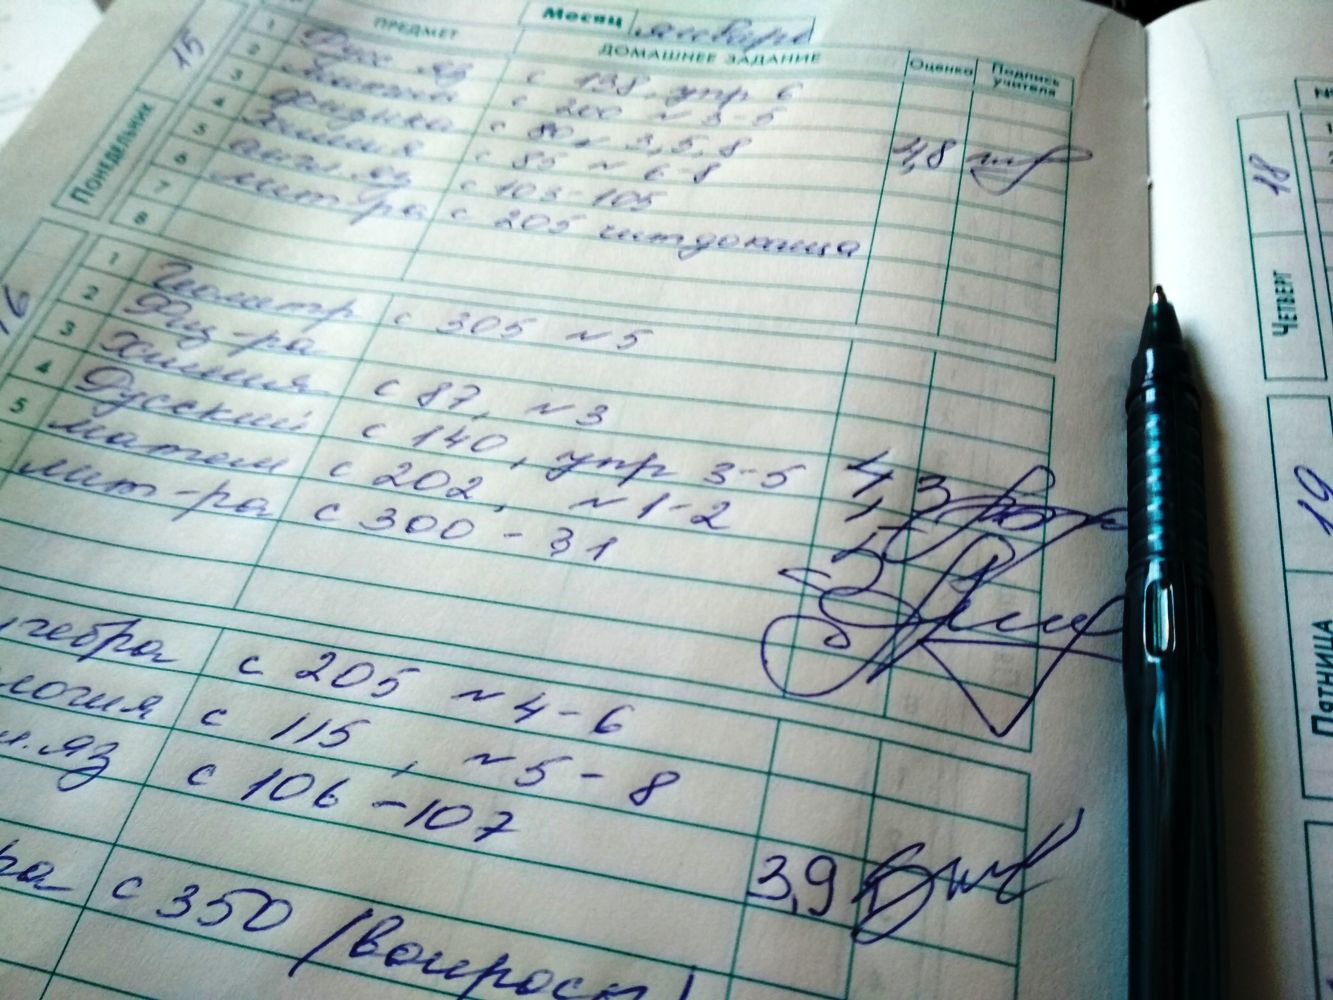 Месяц январь
ПРЕДМЕТ ДОМАШНЕЕ ЗАДАНИЕ Оценка Подпись учителя
15 Понедельник
1 Русс яз с 138, упр 6
2 Матем с 200 N 3-5
3 физика с 80 N 3,5,8
4 Химия с 85 N 6-8 4,8
5 англ яз с 103-105
6 лит-ра с 205 читдоконца
7
8
16
1 Геометр с 305 N5
2 Физ-ра
3 Химия с 87, N3
4 Русский с 140, упр 3-5
5 матем с 202, N1-2
лит-ра с 300-31
гебра с 205 N4-6
логия с 115, N5-8
яз с 106-107
3,9
ра с 350 (вопросы)
18
ЧЕТВЕРГ
19
ПЯТНИЦА